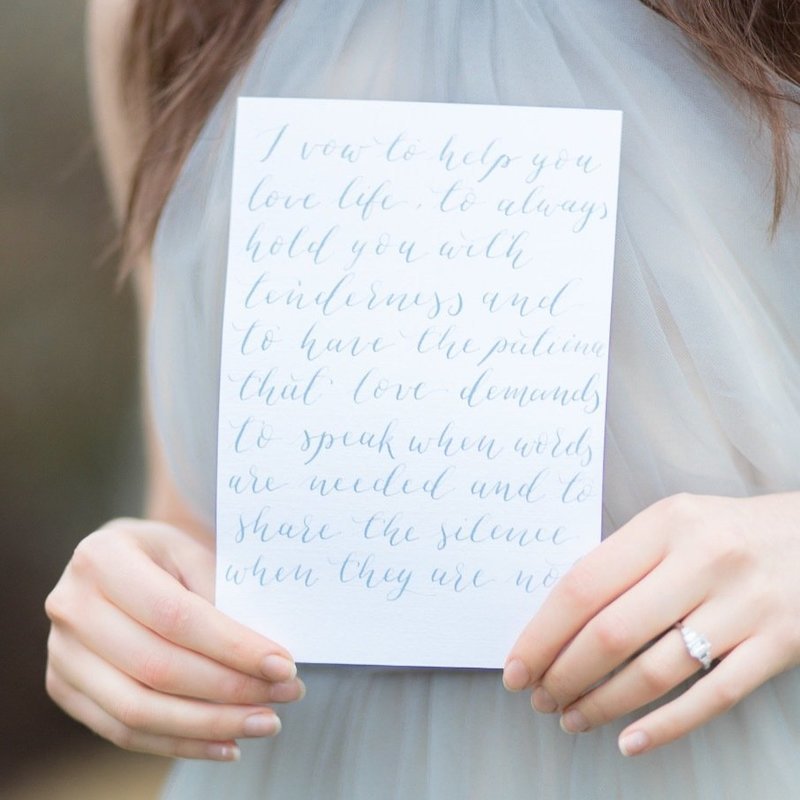 I vow to help you
love life, to always
hold you with
tenderness and
to have the patience
that love demands
to speak when words
are needed and to
share the silence
when they are not